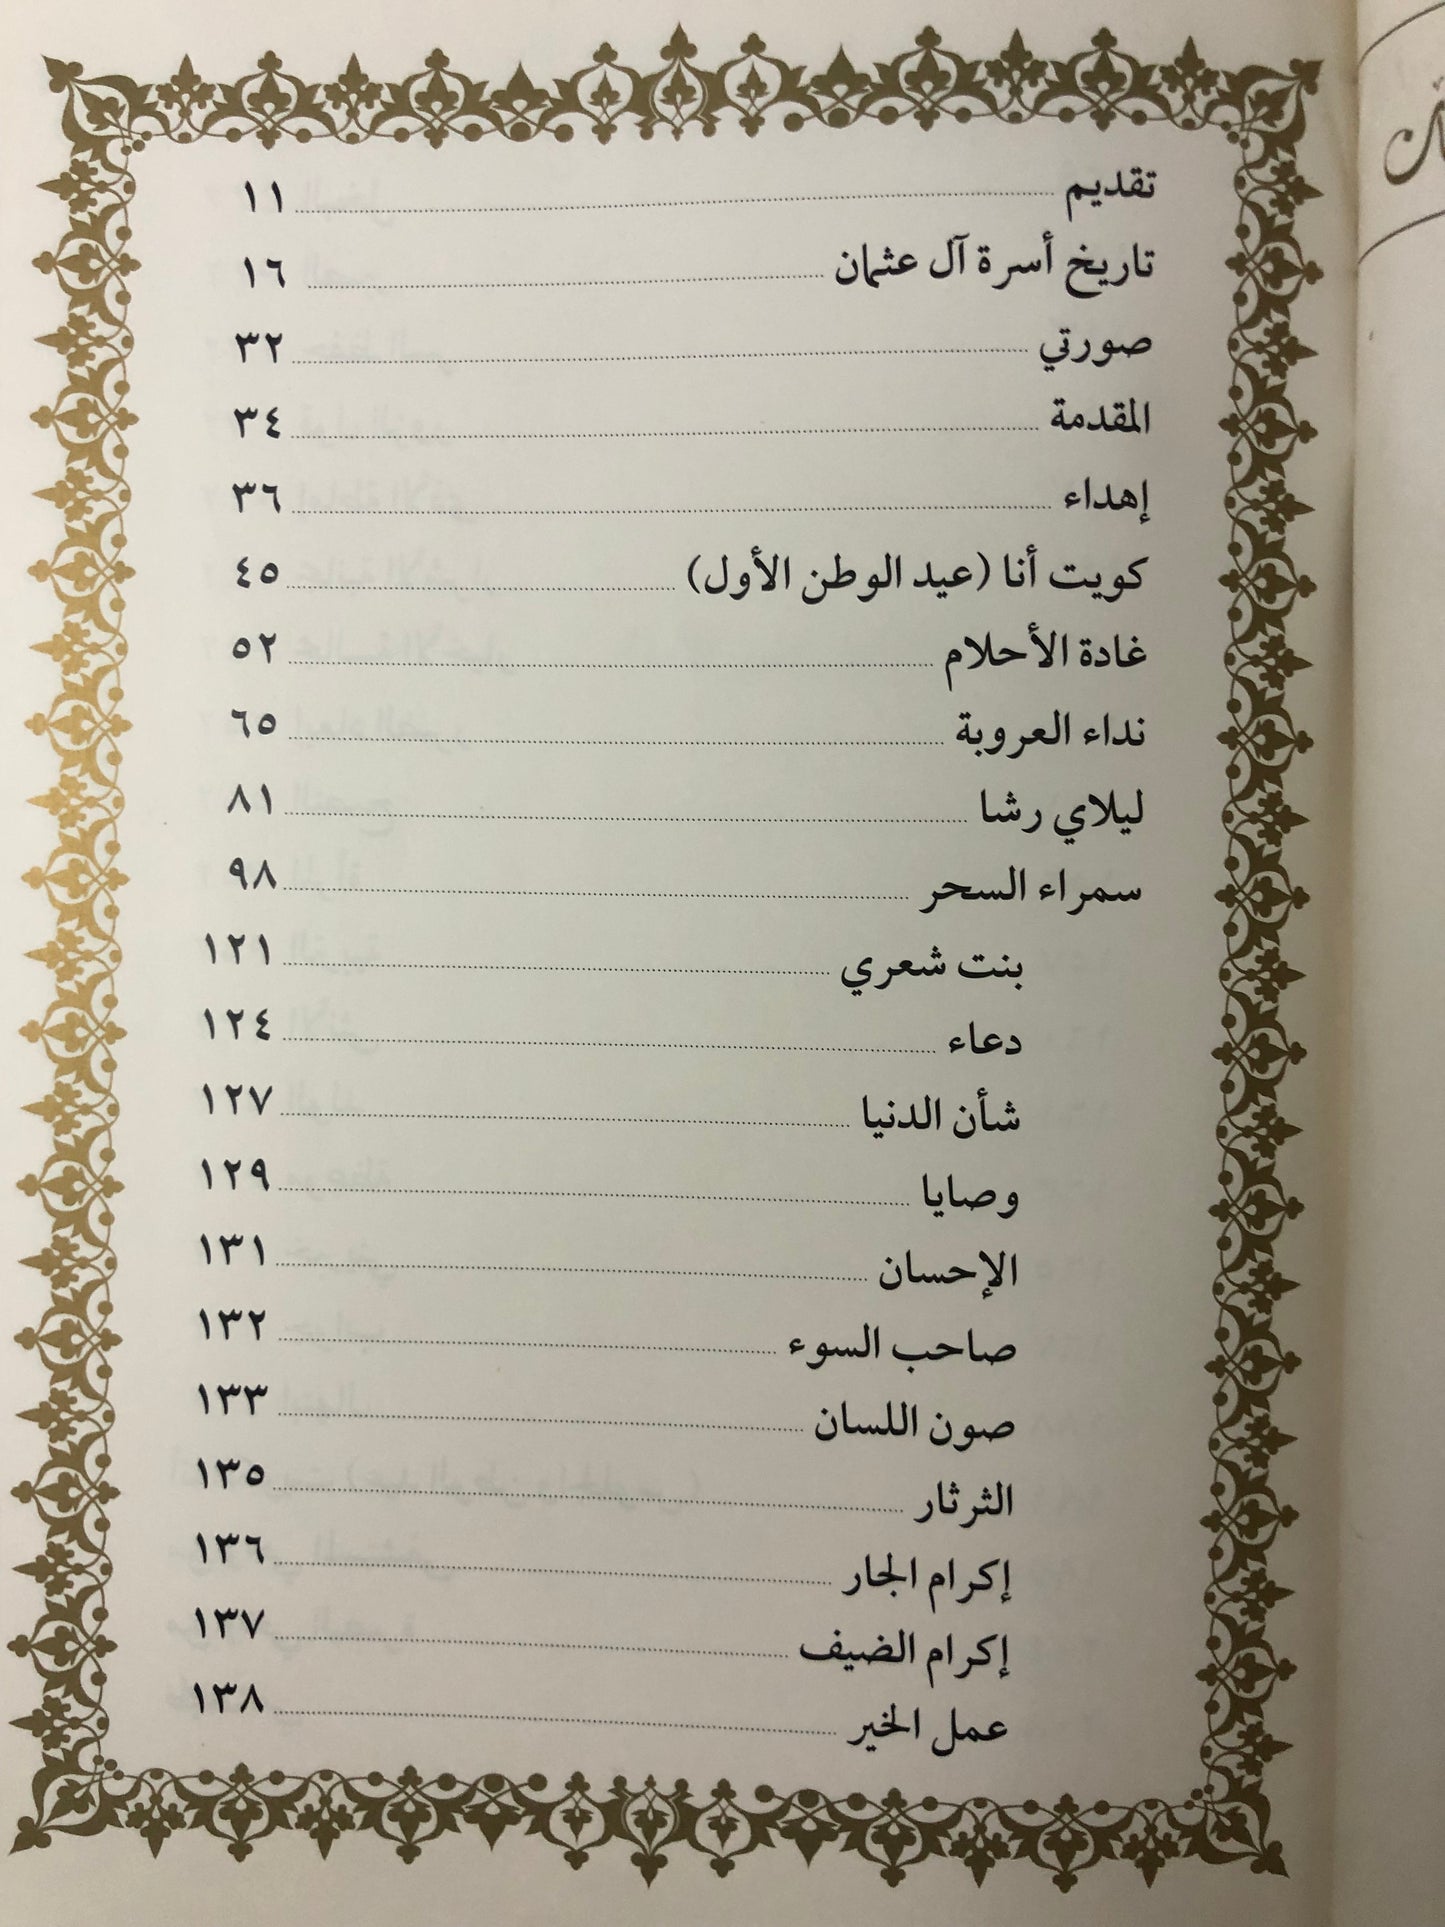 تقديم ١١
تاريخ أسرة آل عثمان ١٦
صورتي ٣٢
المقدمة ٣٤
إهداء ٣٦
كويت أنا (عيد الوطن الأول) ٤٥
غادة الأحلام ٥٢
نداء العروبة ٦٥
ليلاي رشا ٨١
سمراء السحر ٩٨
بنت شعري ١٢١
دعاء ١٢٤
شأن الدنيا ١٢٧
وصايا ١٢٩
الإحسان ١٣١
صاحب السوء ١٣٢
صون اللسان ١٣٣
الثرثار ١٣٥
إكرام الجار ١٣٦
إكرام الضيف ١٣٧
عمل الخير ١٣٨